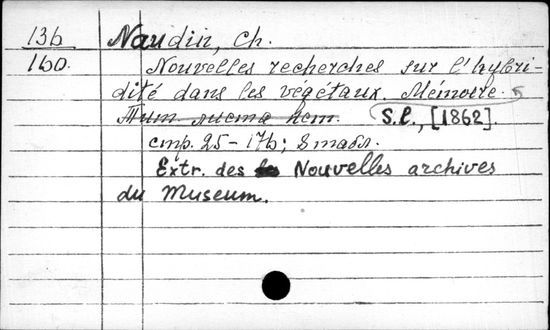 136 Naudin, Ch.
160. Nouvelles recherches sur l'hybri-
dité dans les végétaux. Mémoire.
Тит. листа нет. S.l., [1862].
стр. 25-176; 8 табл.
Extr. des Nouvelles archives
du Museum.